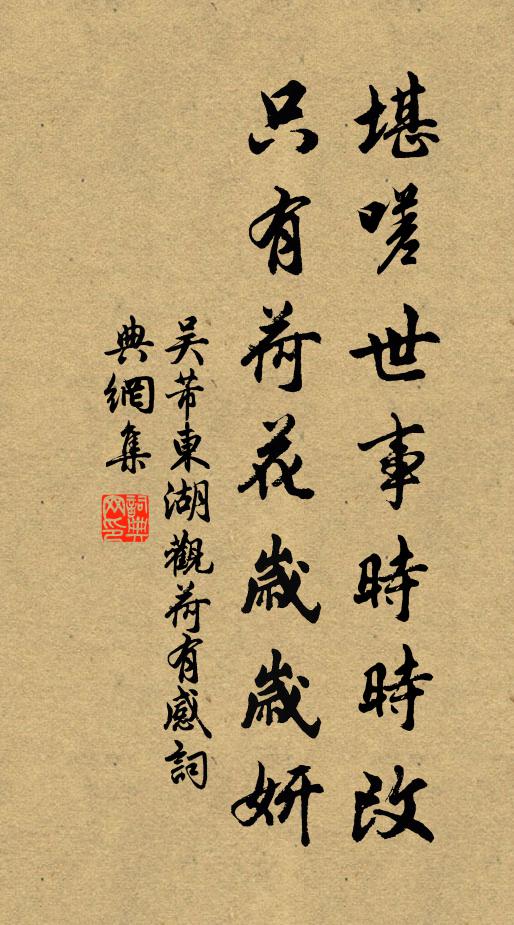 堪嗟世事時時改
只有荷花歲歲妍
吴芾東湖觀荷有感詞
典網集
詞典
网印